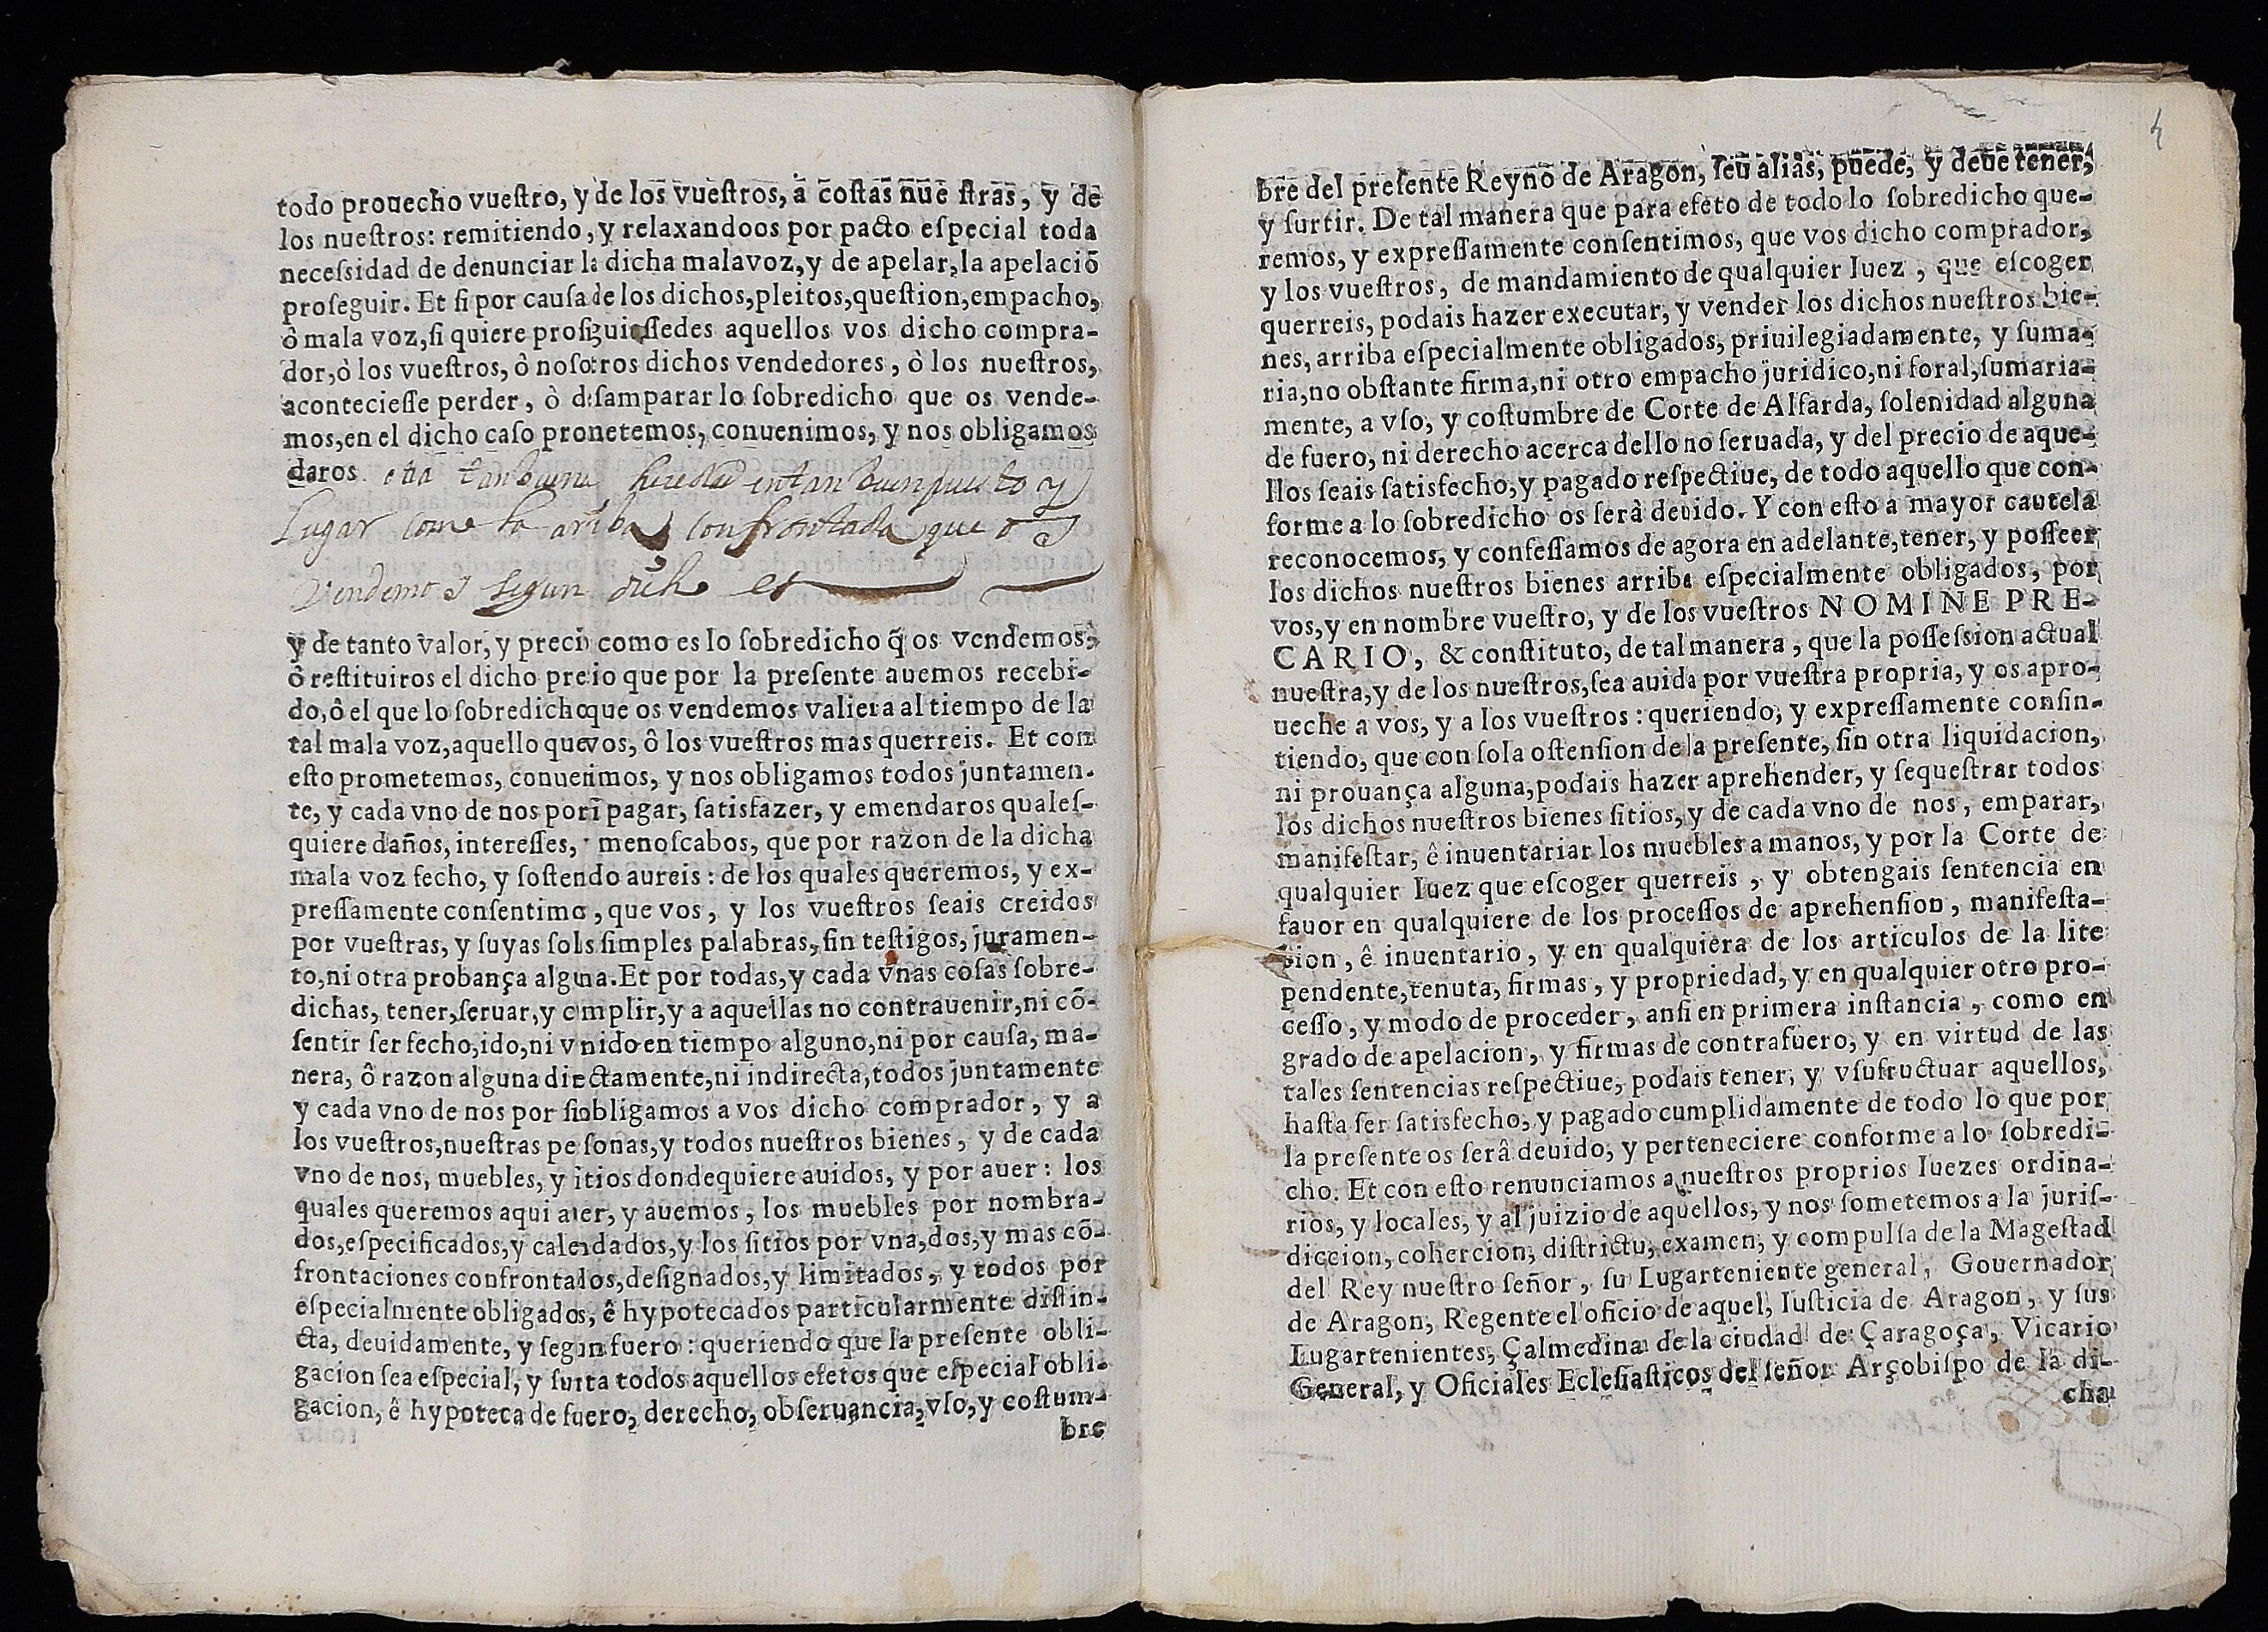 todo prouecho vuestro, y de los vuestros, à costas nue stras, y de
los nuestros: remitiendo, y relaxandoos por pacto especial toda
necessidad de denunciar la dicha malavoz, y de apelar, la apelaciõ
proseguir. Et si por causa de los dichos, pleitos, question, empacho,
ô mala voz, si quiere prosiguiessedes aquellos vos dicho compra-
dor, ò los vuestros, ô nosotros dichos vendedores, ò los nuestros,
aconteciesse perder, ò desamparar lo sobredicho que os vende-
mos, en el dicho caso prometemos, conuenimos, y nos obligamos
daros otra tan buena heredad en tan buen puesto y
Lugar como la arriba confrontada que os
Vendemos segun dicho es
y de tanto valor, y precio como es lo sobredicho q̃ os vendemos,
ô restituiros el dicho precio que por la presente auemos recebi-
do, ô el que lo sobredicho que os vendemos valiera al tiempo de la
tal mala voz, aquello que vos, ô los vuestros mas querreis. Et con
esto prometemos, conuenimos, y nos obligamos todos juntamen-
te, y cada vno de nos por si pagar, satisfazer, y emendaros quales-
quiere daños, interesses, y menoscabos, que por razon de la dicha
mala voz fecho, y sostendo aureis: de los quales queremos, y ex-
pressamente consentimos, que vos, y los vuestros seais creidos
por vuestras, y suyas solas simples palabras, sin testigos, juramen-
to, ni otra probança alguna. Et por todas, y cada vnas cosas sobre-
dichas, tener, seruar, y cumplir, y a aquellas no contrauenir, ni cõ-
sentir ser fecho, ido, ni venido en tiempo alguno, ni por causa, ma-
nera, ô razon alguna directamente, ni indirecta, todos juntamente
y cada vno de nos por si obligamos a vos dicho comprador, y a
los vuestros, nuestras personas, y todos nuestros bienes, y de cada
vno de nos, muebles, y sitios dondequiere auidos, y por auer: los
quales queremos aqui auer, y auemos, los muebles por nombra-
dos, especificados, y calendados, y los sitios por vna, dos, y mas cõ-
frontaciones confrontados, designados, y limitados, y todos por
especialmente obligados, ê hypotecados particularmente distin-
cta, deuidamente, y segun fuero: queriendo que la presente obli-
gacion sea especial, y surta todos aquellos efetos que especial obli-
gacion, ê hypoteca de fuero, derecho, obseruancia, vso, y costum-
bre
4
bre del presente Reyno de Aragon, seu aliàs, puede, y deue tener,
y surtir. De tal manera que para efeto de todo lo sobredicho que-
remos, y expressamente consentimos, que vos dicho comprador,
y los vuestros, de mandamiento de qualquier Iuez, que escoger
querreis, podais hazer executar, y vender los dichos nuestros bie-
nes, arriba especialmente obligados, priuilegiadamente, y suma-
ria, no obstante firma, ni otro empacho juridico, ni foral, sumaria-
mente, a vso, y costumbre de Corte de Alfarda, solenidad alguna
de fuero, ni derecho acerca dello no seruada, y del precio de aque-
llos seais satisfecho, y pagado respectiue, de todo aquello que con-
forme a lo sobredicho os serà deuido. Y con esto a mayor cautela
reconocemos, y confessamos de agora en adelante, tener, y posseer
los dichos nuestros bienes arriba especialmente obligados, por
vos, y en nombre vuestro, y de los vuestros NOMINE PRE-
CARIO, & constituto, de tal manera, que la possession actual
nuestra, y de los nuestros, sea auida por vuestra propria, y os apro-
ueche a vos, y a los vuestros: queriendo, y expressamente consin-
tiendo, que con sola ostension de la presente, sin otra liquidacion,
ni prouança alguna, podais hazer aprehender, y sequestrar todos
los dichos nuestros bienes sitios, y de cada vno de nos, emparar,
manifestar, ê inuentariar los muebles a manos, y por la Corte de
qualquier Iuez que escoger querreis, y obtengais sentencia en
fauor en qualquiere de los processos de aprehension, manifesta-
cion, ê inuentario, y en qualquiera de los articulos de la lite
pendente, tenuta, firmas, y propriedad, y en qualquier otro pro-
cesso, y modo de proceder, ansi en primera instancia, como en
grado de apelacion, y firmas de contrafuero, y en virtud de las
tales sentencias respectiue, podais tener, y vsufructuar aquellos,
hasta ser satisfecho, y pagado cumplidamente de todo lo que por
la presente os serâ deuido, y perteneciere conforme a lo sobredi-
cho. Et con esto renunciamos a nuestros proprios Iuezes ordina-
rios, y locales, y al juizio de aquellos, y nos sometemos a la juris-
diccion, cohercion, districtu, examen, y compulsa de la Magestad
del Rey nuestro señor, su Lugarteniente general, Gouernador
de Aragon, Regente el oficio de aquel, Iusticia de Aragon, y sus
Lugartenientes, Çalmedina de la ciudad de Çaragoça, Vicario
General, y Oficiales Eclesiasticos del señor Arçobispo de la di-
cha